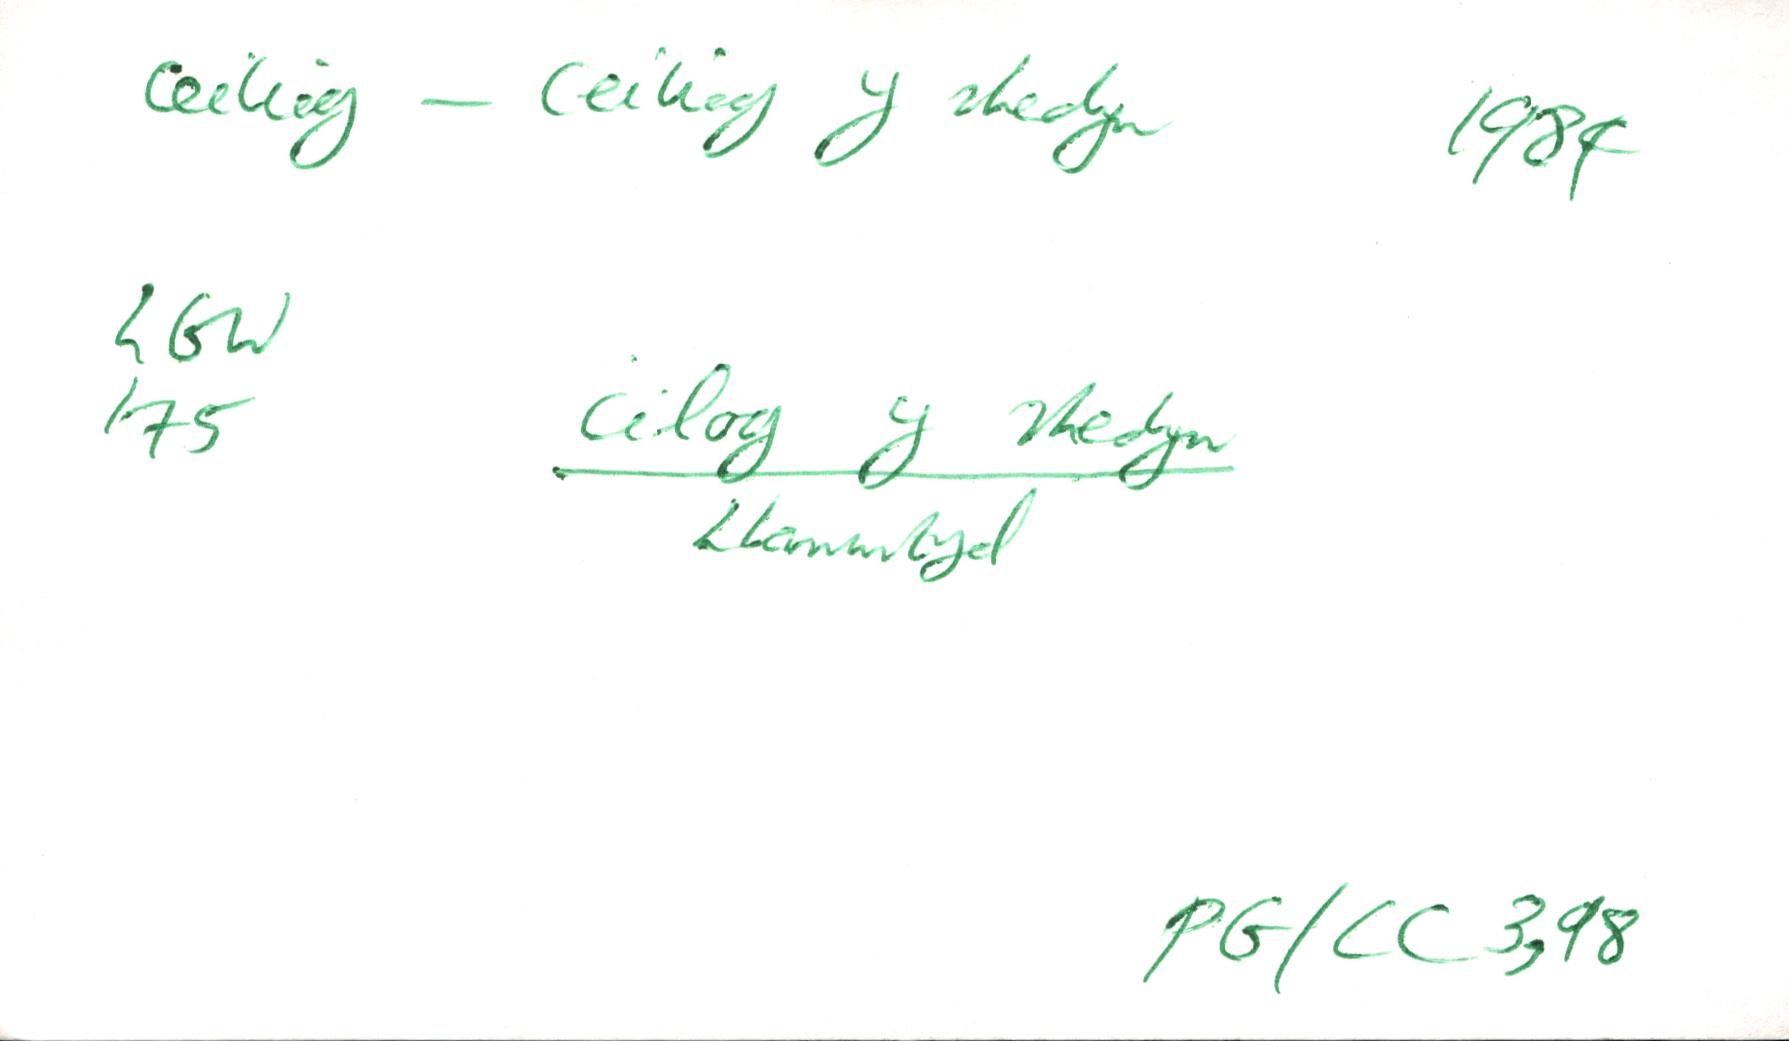 ceiliog — ceiliog y rhedyn 1984
LGW
175
ceilog y rhedyn
Llanwrtyd
PG/CC 3,98